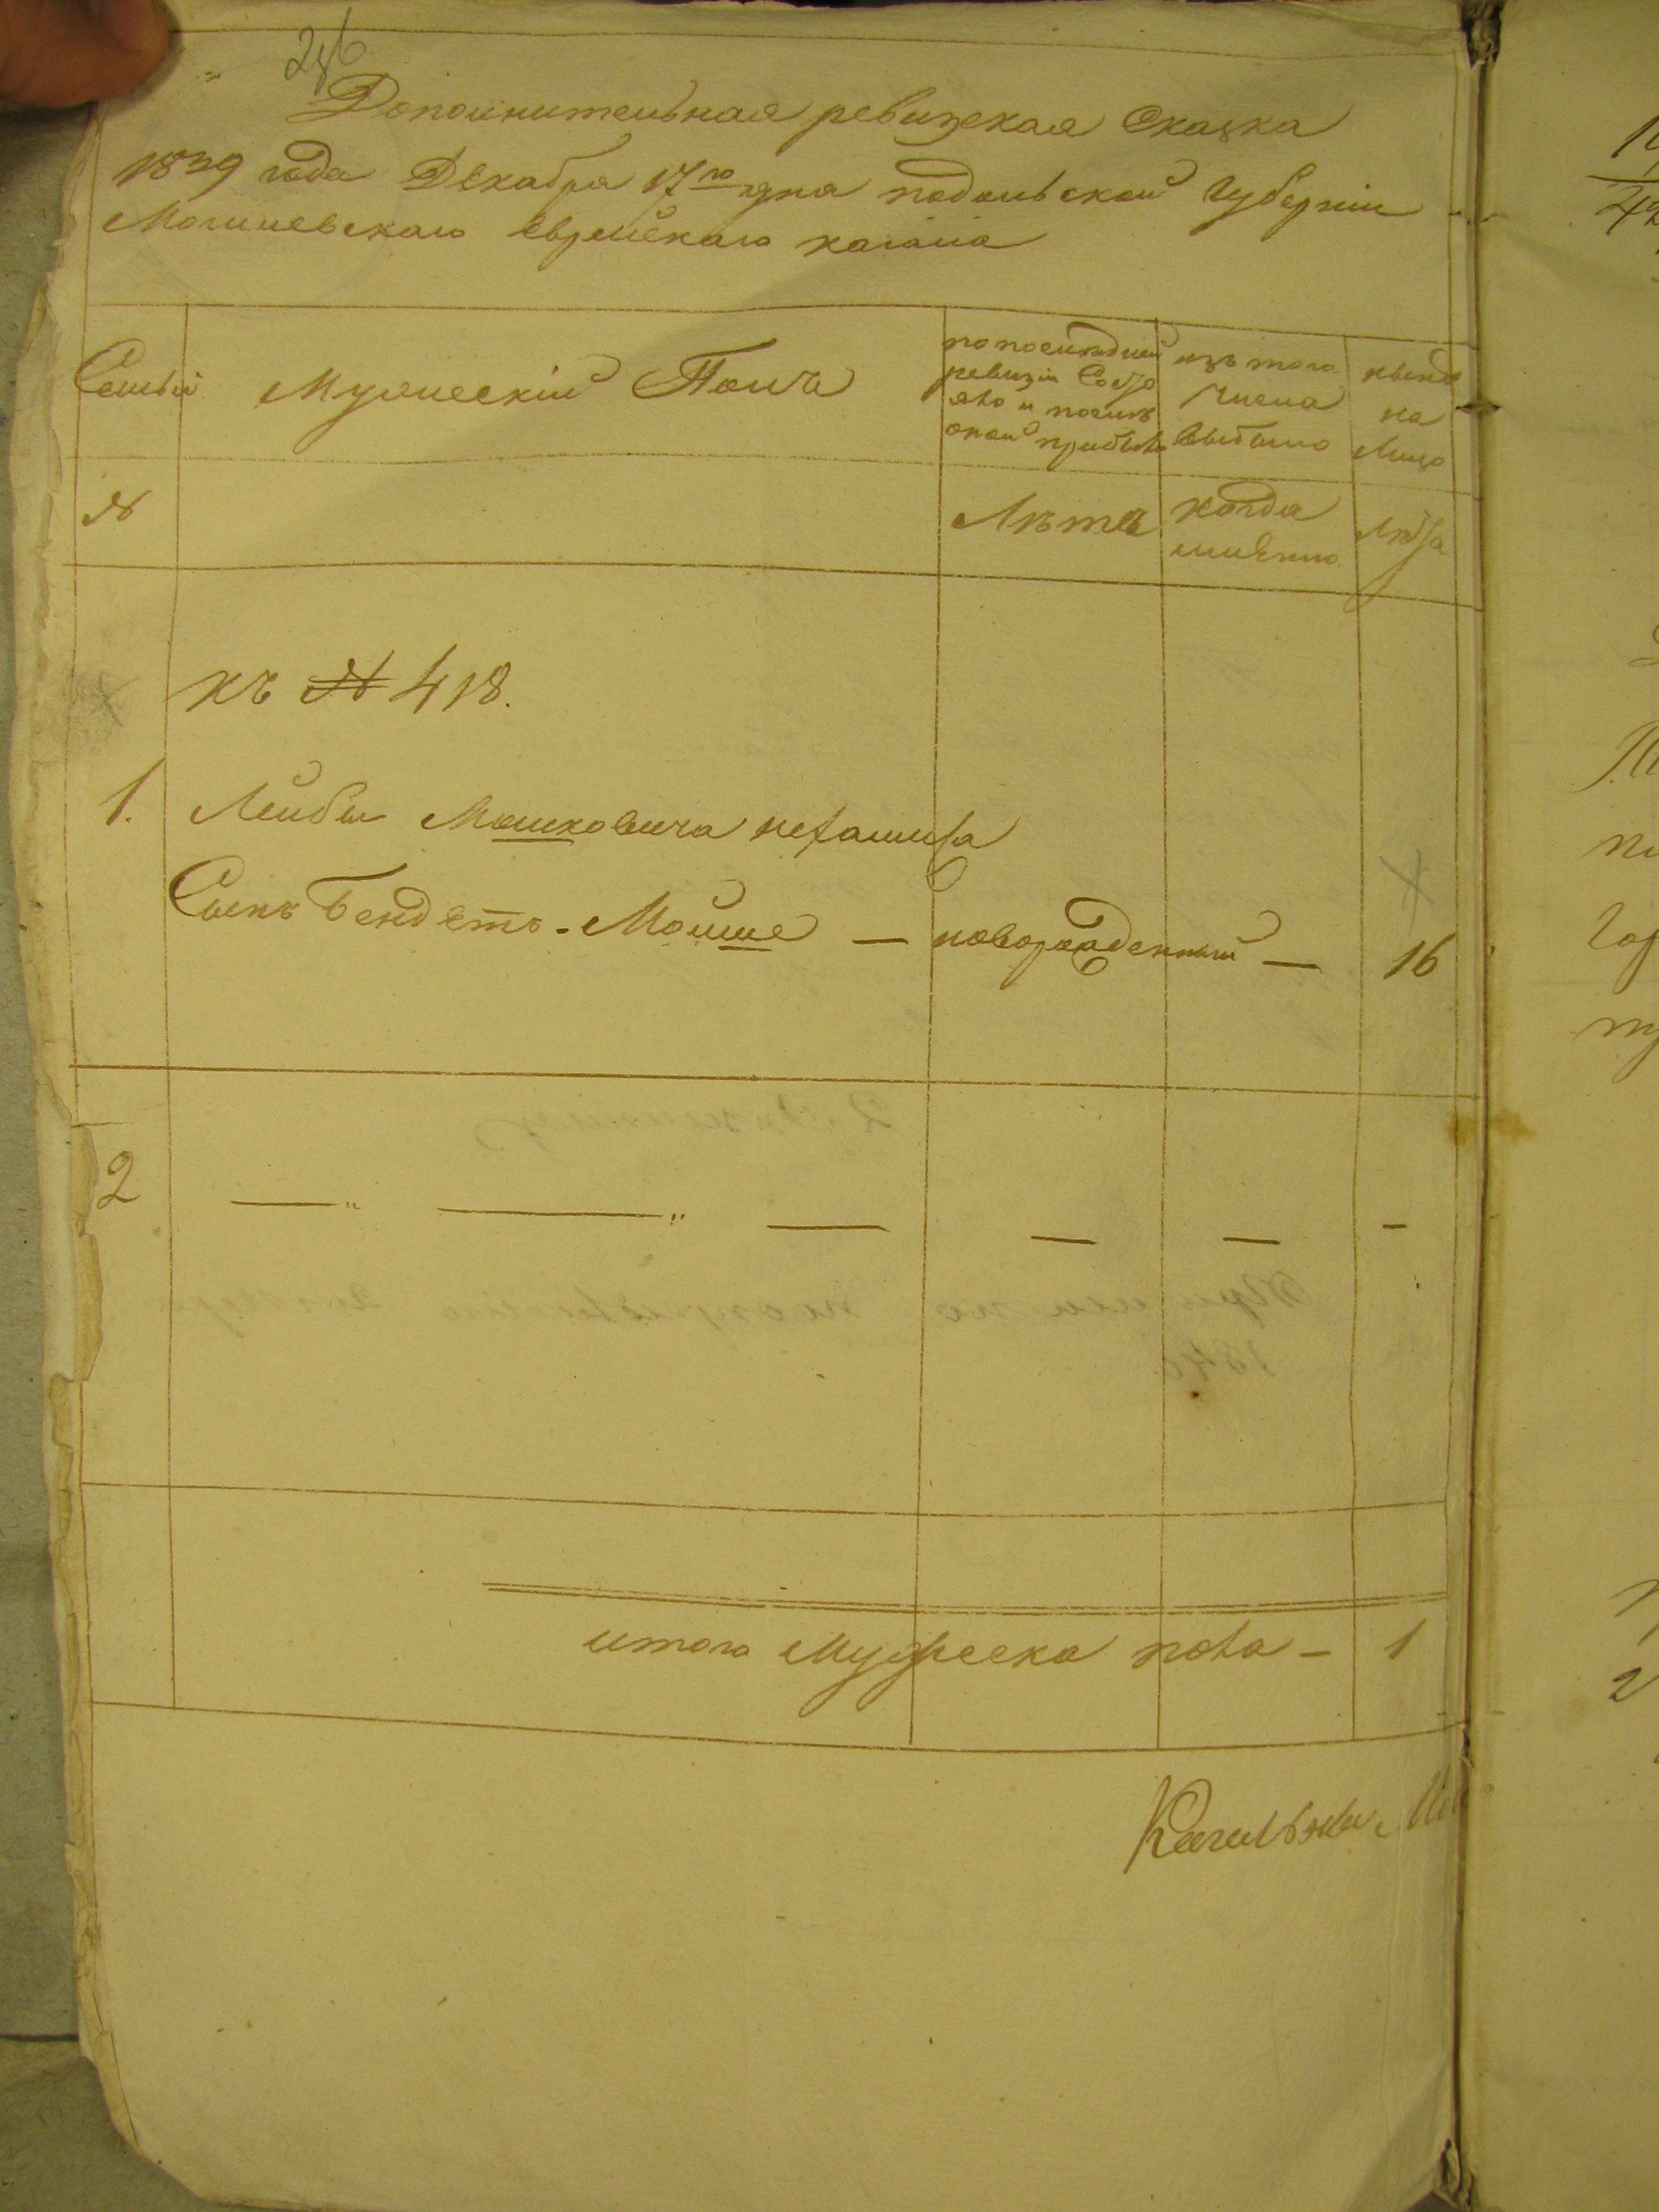 246
Дополнительная ревизская Сказка
1839 года Декабря 17го дня подольской Губернии
Могилевскаго Еврейскаго кагала
Семьи
Мужескій Полъ
по последней
ревизіи Состо
яло и после
оной прибыло
изъ того
числа
выбыло
ныне
на
Лицо
№
Лѣта
когда
имянно
Лѣта
къ № 418.
1. Лейбы Мошковича
Сынъ Бендетъ-Мойше — новорожденный — 16
2
итого Мужеска пола - 1
Кагальны